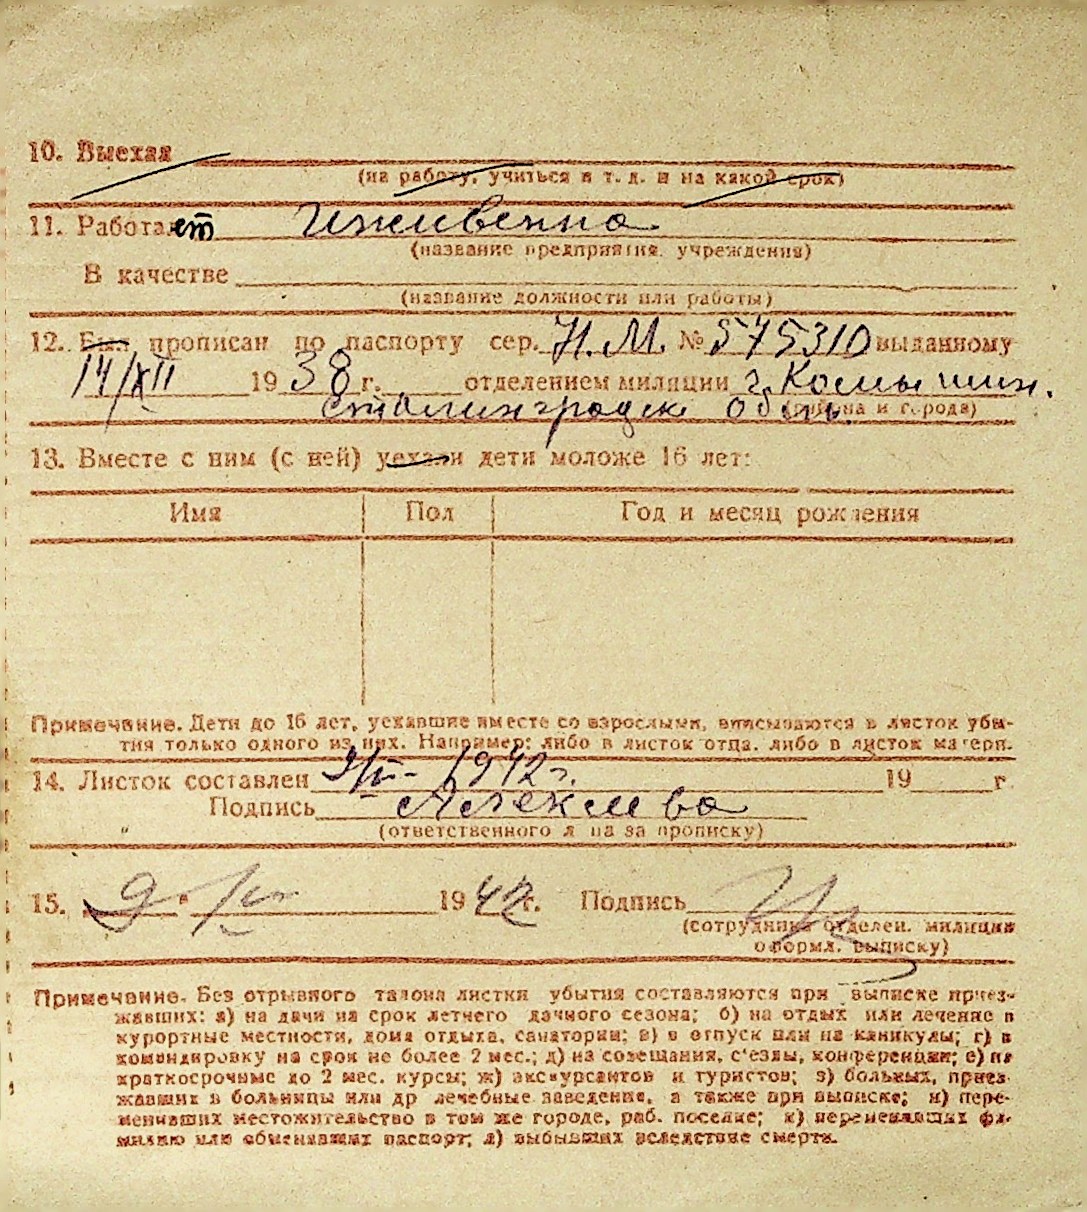 10. Выехал
(на работу, учиться и т. д. и на какой срок)
11. Работает Иждивенна
(название предприятия, учреждения)
В качестве
(название должности или работы)
12. Был прописан по паспорту сер. Н. М. № 575310 выданному
14/XII 1938 г. отделением милиции г. Камышин.
Сталинградск обл. (района и города)
13. Вместе с ним (с ней) уехали дети моложе 16 лет:
Имя Пол Год и месяц рождения
Примечание. Дети до 16 лет, уехавшие вместе со взрослыми, вписываются в листок убы-
тия только одного из них. Например: либо в листок отца, либо в листок матери.
14. Листок составлен 1942 г. 19 г.
Подпись
(ответственного л ца за прописку)
15. 9 1942 г. Подпись
(сотрудника отделен. милиции
оформл. выписку)
Примечание. Без отрывного талона листки убытия составляются при выписке приез-
жавших: а) на дачи на срок летнего дачного сезона; б) на отдых или лечение в
курортные местности, дома отдыха, санатории; в) в отпуск или на каникулы; г) в
командировку на срок не более 2 мес.; д) на совещания, с'езды, конференции; е) на
краткосрочные до 2 мес. курсы; ж) экскурсантов и туристов; з) больных, приез-
жавших в больницы или др лечебные заведения, а также при выписке; и) пере-
менивших местожительство в том же городе, раб. поселке; к) переменивших фа-
милию или обменявших паспорт; л) выбывших вследствие смерти.